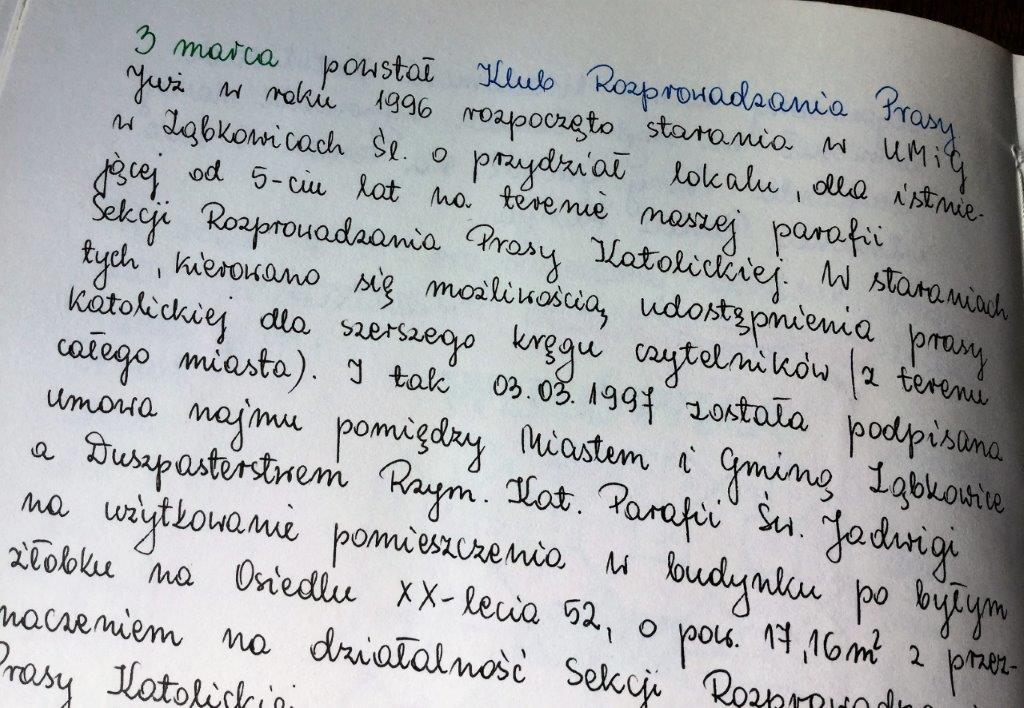 3 marca powstał Klub Rozprowadzania Prasy
Już w roku 1996 rozpoczęto starania w UMiG
w Ząbkowicach Śl. o przydział lokalu, dla istnie-
jącej od 5-ciu lat na terenie naszej parafii
Sekcji Rozprowadzania Prasy Katolickiej. W staraniach
tych, kierowano się możliwością udostępnienia prasy
katolickiej dla szerszego kręgu czytelników (z terenu
całego miasta). I tak 03.03.1997 została podpisana
umowa najmu pomiędzy Miastem i Gminą Ząbkowice
a Duszpasterstwem Rzym. Kat. Parafii Św. Jadwigi
na użytkowanie pomieszczenia w budynku po byłym
żłobku na Osiedlu XX-lecia 52, o pow. 17,16m² z przez-
naczeniem na działalność Sekcji
Prasy Katolickiej